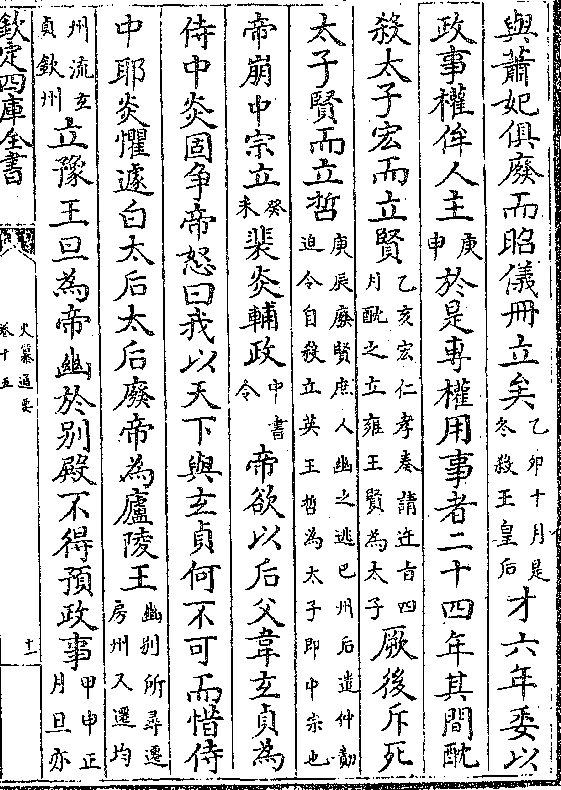 與蕭妃俱廢而昭儀冊立矣乙卯十月是冬殺王皇后才六年委以
政事權侔人主庚申於是專權用事者二十四年其間酖
殺太子宏而立賢乙亥宏仁孝奏請迕旨四月酖之立雍王賢為太子厥後斥死
太子賢而立哲庚辰廢賢庶人幽之逃巴州后遣仲勣迫令自殺立英王哲為太子即中宗也
帝崩中宗立癸未裴炎輔政中書令帝欲以后父韋玄貞為
侍中炎固争帝怒曰我以天下與玄貞何不可而惜侍
中耶炎懼遽白太后太后廢帝為廬陵王幽别所尋遷房州又遷均
州流玄貞欽州立豫王旦為帝幽於别殿不得預政事甲申正月旦亦
欽定四庫全書
史纂通要
卷十五
十一